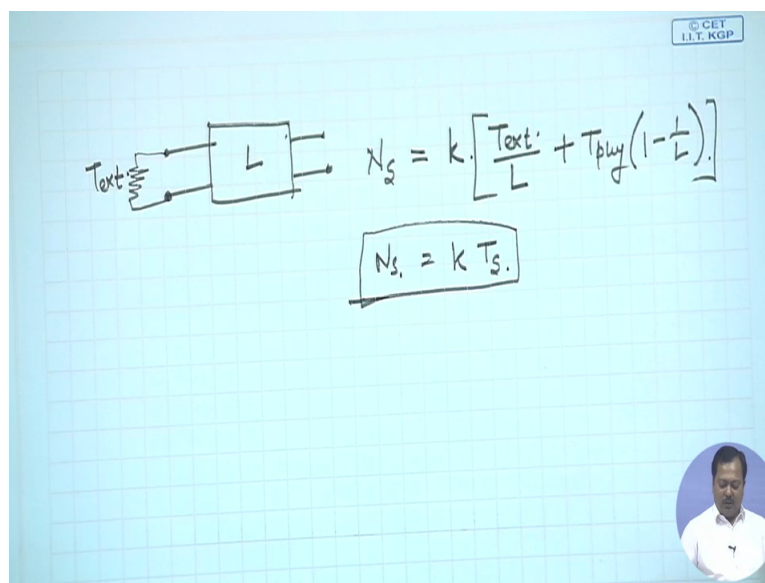 © CET
I.I.T. KGP
Text. L N_S = k. [Text. / L + Tphy (1 - 1/L).]
N_S. = k T_S.